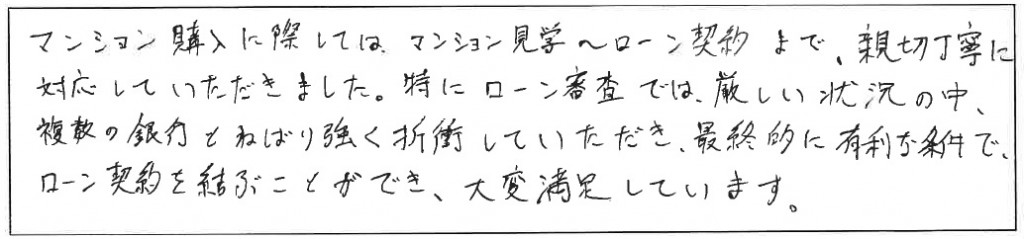 マンション購入に際しては、マンション見学～ローン契約まで、親切丁寧に
対応していただきました。特にローン審査では、厳しい状況の中、
複数の銀行とねばり強く折衝していただき、最終的に有利な条件で、
ローン契約を結ぶことができ、大変満足しています。